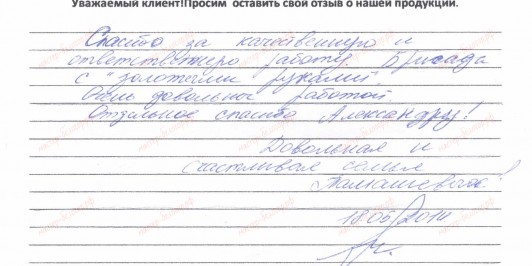 Уважаемый клиент!Просим оставить свой отзыв о нашей продукции.
Спасибо за качественную и
ответственную работу. Бригада
с "золотыми руками"
Очень довольны работой.
Отдельное спасибо Александру!
Довольная и
счастливая семья
18.05/2014